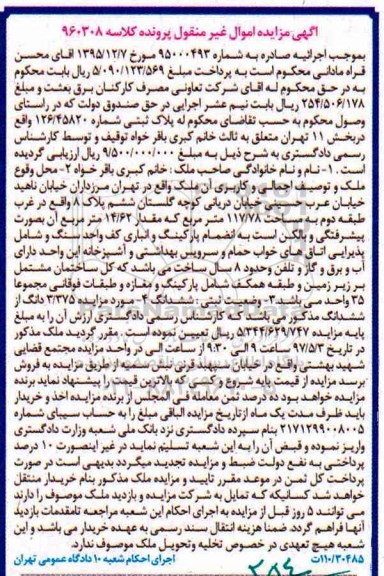 آگهی مزایده اموال غیر منقول پرونده کلاسه ۹۶۰۳۰۸
بموجب اجرائیه صادره به شماره ۹۵۰۰۰۴۹۳ مورخ ۱۳۹۵/۱۲/۷ آقای محسن
قراه مادانی محکوم است به پرداخت مبلغ ۵/۰۹۰/۱۲۳/۵۶۹ ریال بابت محکوم
به در حق محکوم له آقای شرکت تعاونی مصرف کارکنان برق بعثت و مبلغ
۲۵۴/۵۰۶/۱۷۸ ریال بابت نیم عشر اجرایی در حق صندوق دولت که در راستای
وصول محکوم به حسب تقاضای محکوم له پلاک ثبتی شماره ۱۲۶/۴۵۸۲۰ واقع
دربخش ۱۱ تهران متعلق به ثالث خانم کبری باقر خواه توقیف و توسط کارشناس
رسمی دادگستری به شرح ذیل به مبلغ ۹/۵۰۰/۰۰۰/۰۰۰ ریال ارزیابی گردیده
است . ۱- نام و نام خانوادگی صاحب ملک : خانم کبری باقر خواه ۲- محل وقوع
ملک و توصیف اجمالی و کاربری آن ملک واقع در تهران مرزداران خیابان ناهید
خیابان عرب حسینی خیابان دریانی کوچه گلستان ششم پلاک ۸ واقع در غرب
طبقه دوم به مساحت ۱۱۷/۷۸ متر مربع که مقدار ۱۴/۶۲ متر مربع آن بصورت
پیشرفتگی و بالکن است به انضمام پارکینگ و انباری کف واحد سنگ و شامل
پذیرایی اتاق های خواب حمام و سرویس بهداشتی و آشپزخانه این واحد دارای
آب و برق و گاز و تلفن وحدود ۸ سال ساخت می باشد که کل ساختمان مشتمل
بر زیر زمین و طبقه همکف شامل پارکینگ و مغازه و طبقات فوقانی مجموعا
۳۵ واحد می باشد. ۳- وضعیت ثبتی : ششدانگ ۴- مورد مزایده ۳/۳۷۵ دانگ از
ششدانگ مذکور می باشد که کارشناس رسمی دادگستری ارزش آن را به مبلغ
پایه مزایده ۵/۳۴۴/۶۲۹/۷۴۷ ریال تعیین نموده است . مقرر گردید ملک مذکور
در تاریخ ۹۷/۵/۳ از ساعت ۹ الی ۹:۳۰ در واحد مزایده مجتمع قضایی
شهید بهشتی واقع در خیابان شهید قرنی نبش سمیه از طریق مزایده به فروش
برسد مزایده از قیمت پایه شروع و کسی که بالاترین قیمت را پیشنهاد نماید برنده
مزایده خواهد بود ده درصد ثمن معامله فی المجلس از برنده مزایده اخذ و خریدار
باید ظرف مدت یک ماه ازتاریخ مزایده الباقی مبلغ را به حساب سیبای شماره
۲۱۷۱۲۹۹۰۰۸۰۰۵ بنام سپرده دادگستری نزد بانک ملی شعبه وزارت دادگستری
واریز نموده و قبض آن را به این شعبه تسلیم نماید در غیر اینصورت ۱۰ درصد
پرداختی به نفع دولت ضبط و مزایده تجدید میگردد بدیهی است در صورت
پرداخت کل ثمن در موعد مقرر تایید و مزایده ملک مذکور بنام خریدار منتقل
خواهد شد کسانیکه که تمایل به شرکت مزایده و بازدید ملک موصوف را دارند
می توانند ۵ روز قبل از مزایده به اجرای احکام این شعبه مراجعه تامقدمات بازدید
آنها فراهم گردد ضمنا هزینه انتقال سند رسمی به عهده خریدار می باشد و این
شعبه هیچ تعهدی در خصوص تخلیه وتحویل ملک موصوف ندارد.
۱۱۰/۳۰۴۸۵ت اجرای احکام شعبه ۱۰ دادگاه عمومی تهران